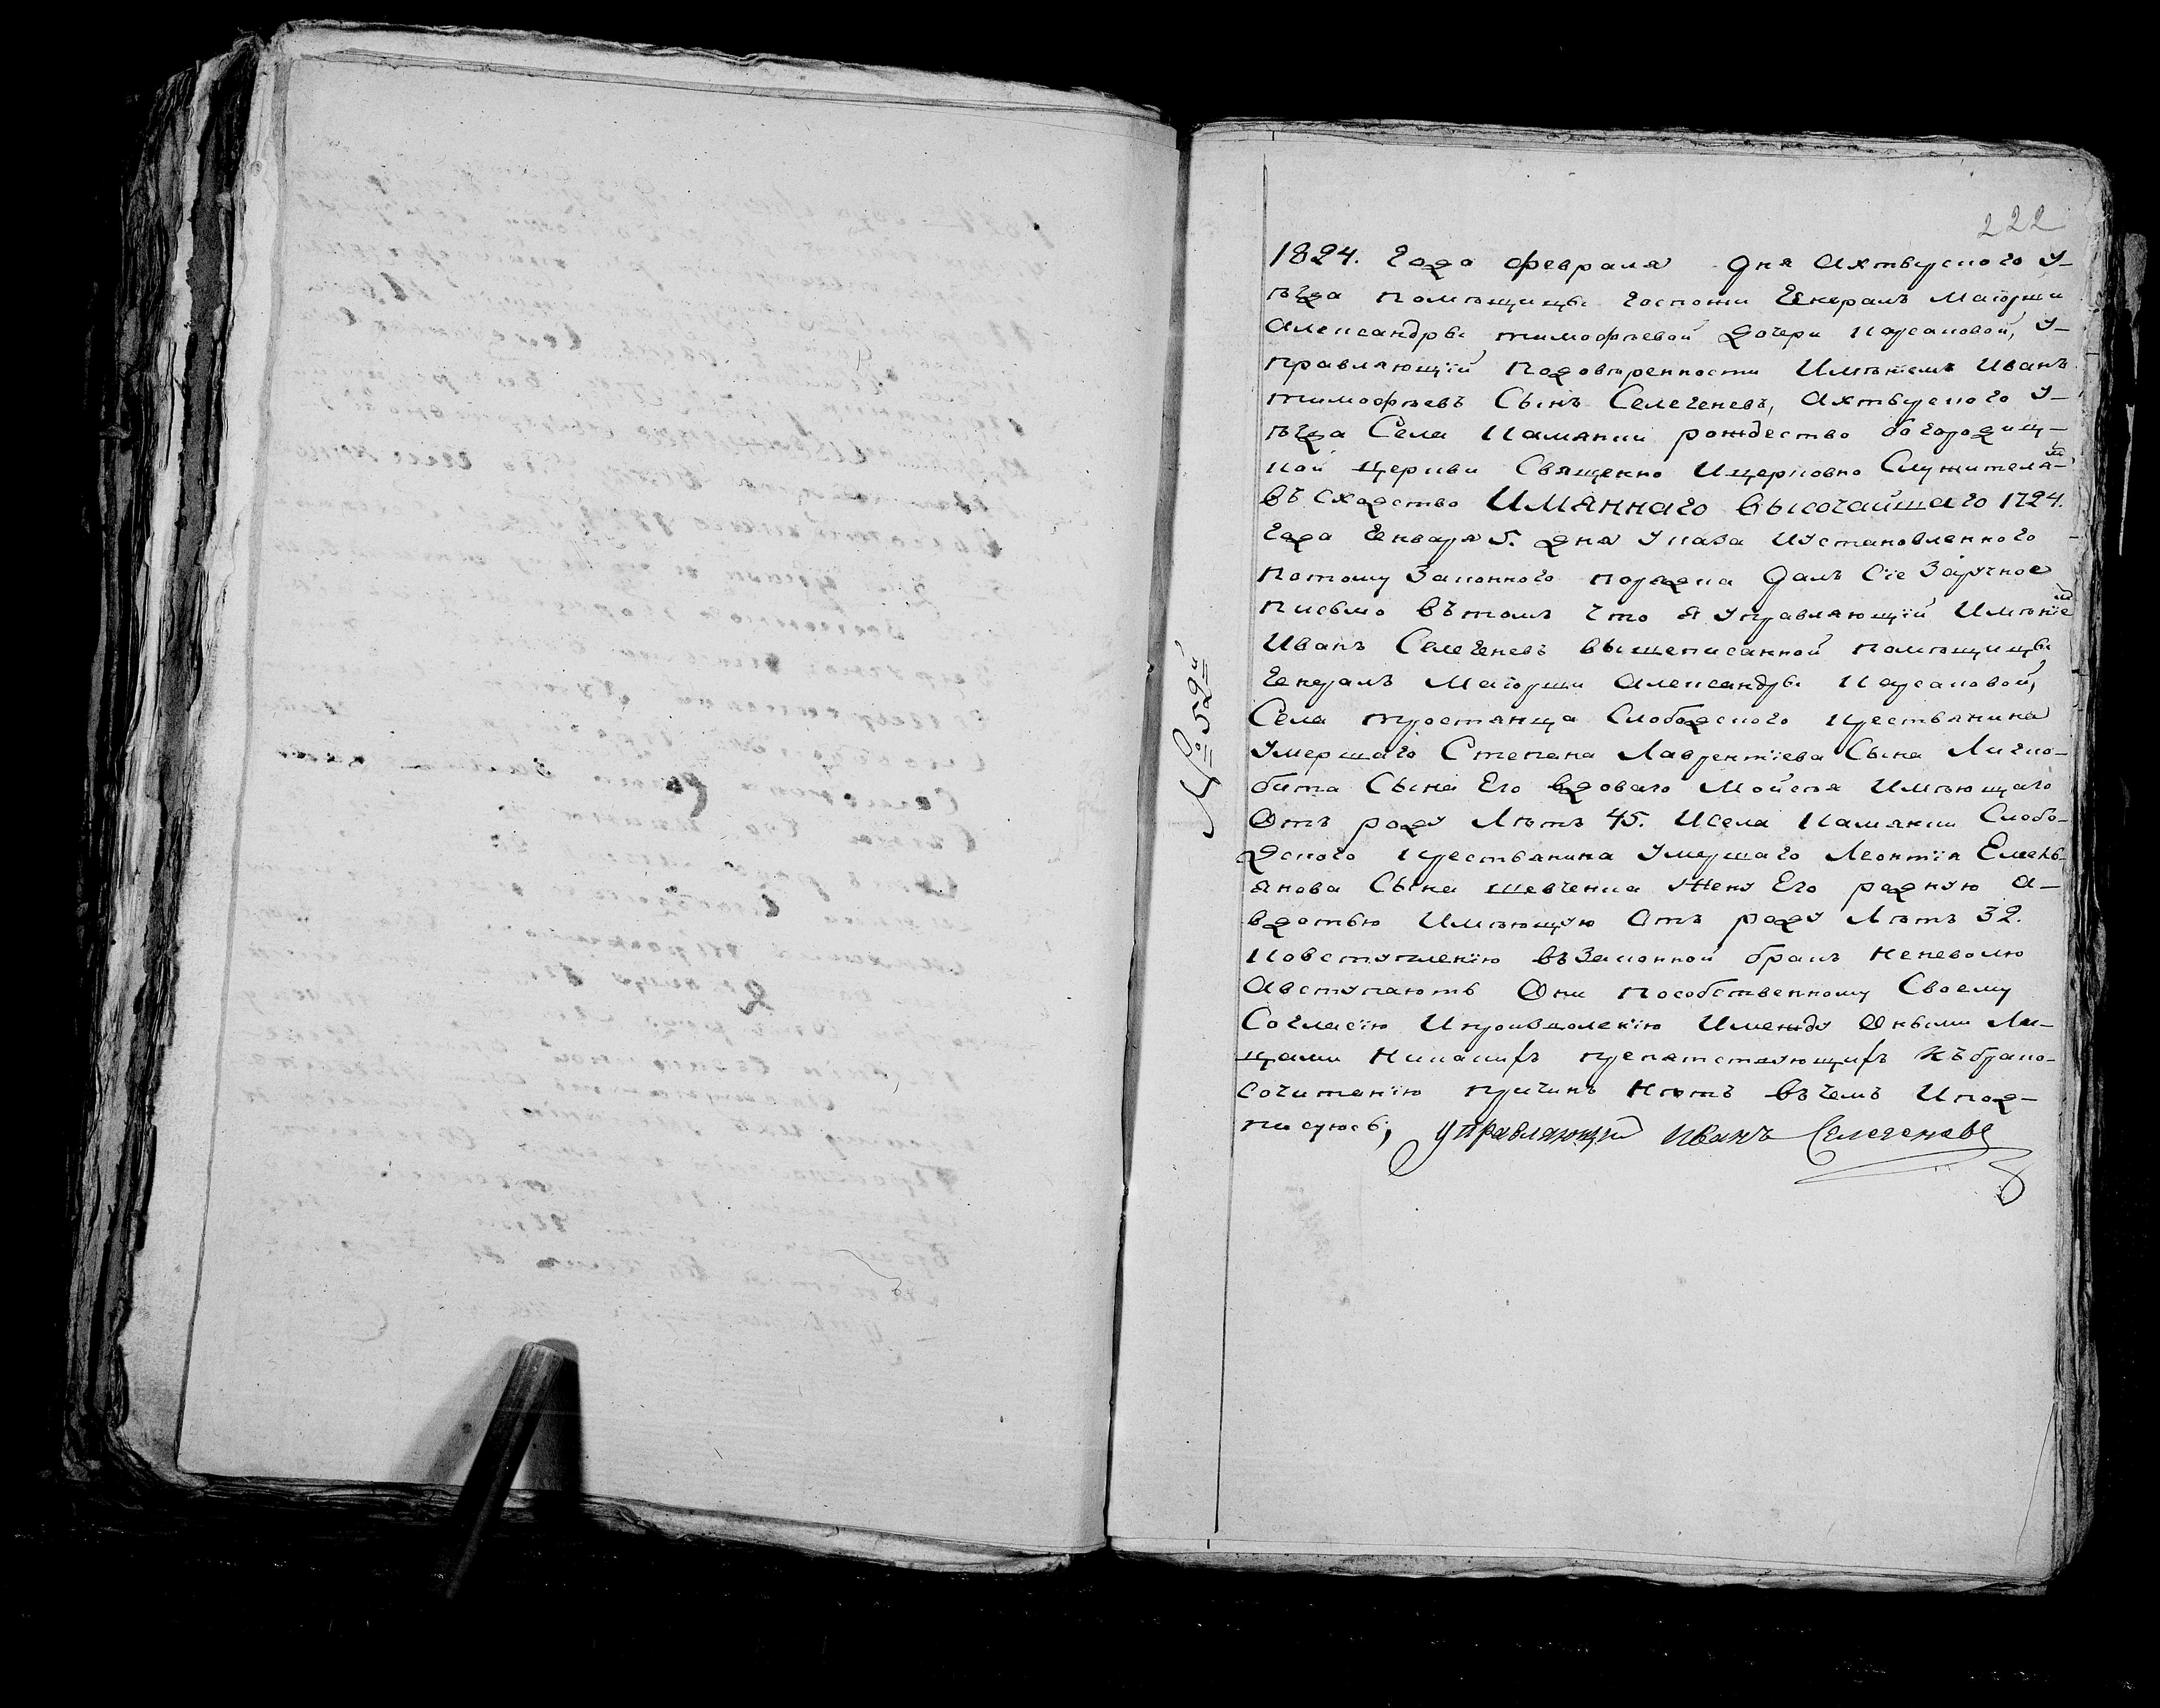 222
1824. Года февраля дня Ахтырского У-
ѣзда помѣщицы госпожи Генералъ Маіорши
Александры тимофѣевой дочери Корсаковой, У-
правляющій подовѣренности Имѣніемъ Иванъ
тимофѣевъ Сынъ Селегеневъ, Ахтырского У-
ѣзда Села Камянки рождество богородич-
ной церкви Священно Ицерковно Служителямъ
въ сходство Имяннаго высочайшаго 1724.
Года Генваря 5. дня Указа Иустановленного
потому Законного порядка далъ Сіе Заручное
письмо вътомъ что я управляющій Имѣніемъ
Иванъ Селегеневъ вышеписанной помѣщицы
Генералъ Маіорши Александры Корсаковой,
Села тростянца Слободского крестьянина
Умершаго Степана Лаврентіева Сына Личко-
бита Сына Его вдоваго Мойсея Имѣющаго
Отъ роду Лѣтъ 45. Исела Камянки Слобо-
дского крестьянина Умершаго Леонтія Емель-
янова Сына шевченка Жену Его родную А-
вдотью Имѣющую Отъ роду Лѣтъ 32.
Ковступленію въЗаконной бракъ неневолю
Авступаютъ Они пособственному Своему
Согласію Ипроизволенію Имежду Оными Ли-
цами Никакихъ препятствующихъ Къбрако-
сочитанію причинъ Нѣтъ въчемъ Ипод-
писуюсь, управляющій Иванъ Селегеневъ
№ 52й